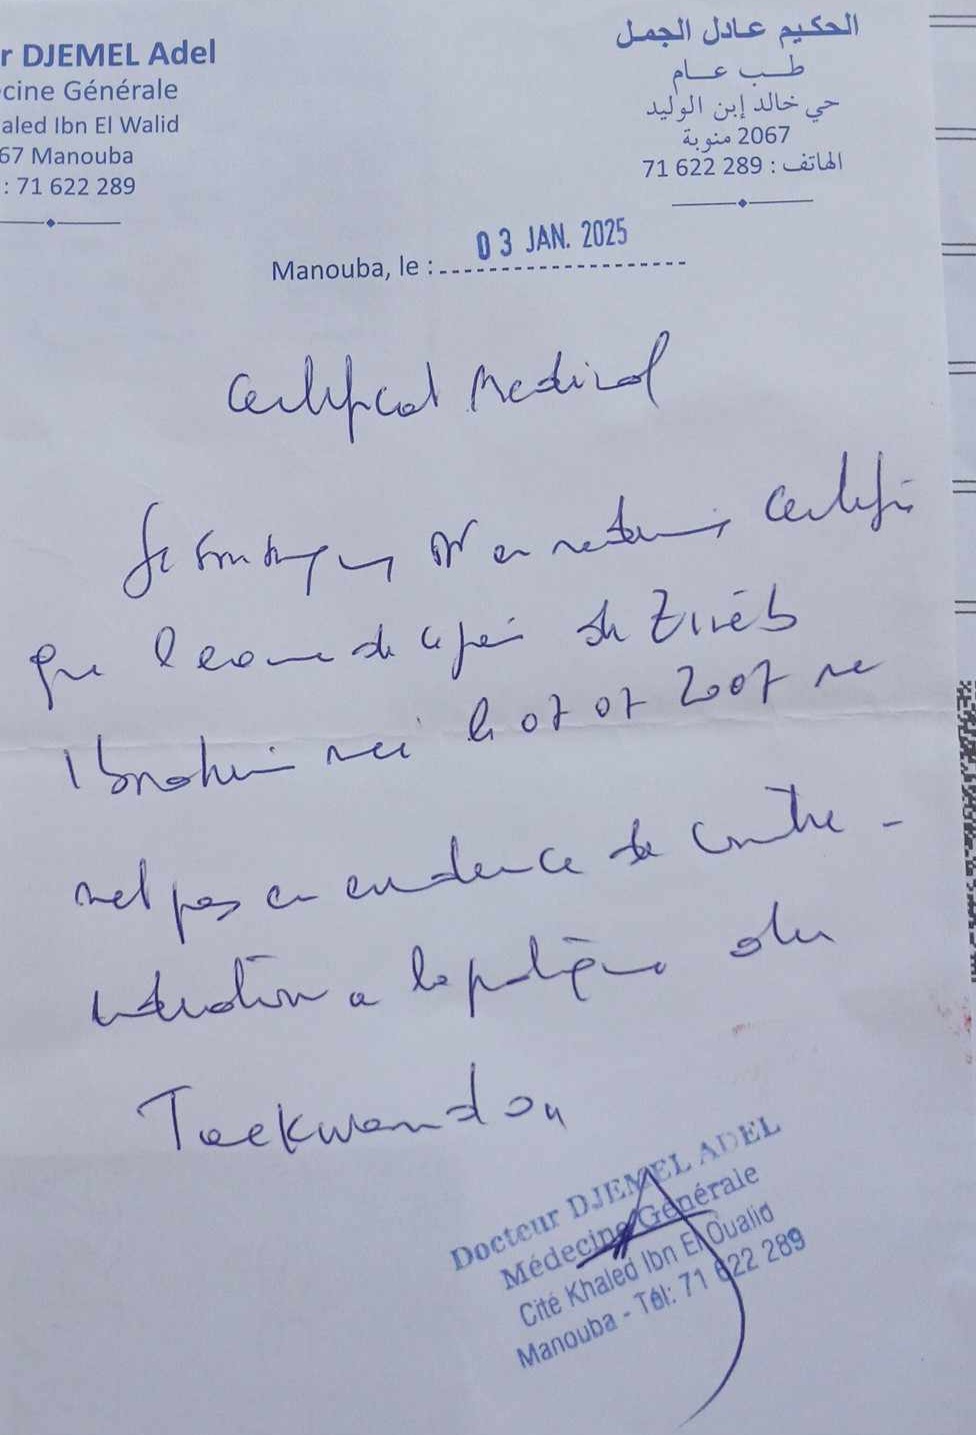 r DJEMEL Adel
cine Générale
aled Ibn El Walid
67 Manouba
: 71 622 289
الحكيم عادل الجمل
طب عام
حي خالد إبن الوليد
2067 منوبة
الهاتف : 289 622 71
Manouba, le : 03 JAN. 2025
Certificat Medical
Je soussigné Dr en medecine certifie
que l'examen de ce jour de Zineb
Ibrahim née le 07 07 2007 ne
met pas en evidence de contre-
indication a la pratique du
Taekwondou
Docteur DJEMEL ADEL
Médecine Générale
Cité Khaled Ibn El Oualid
Manouba - Tél: 71 622 289